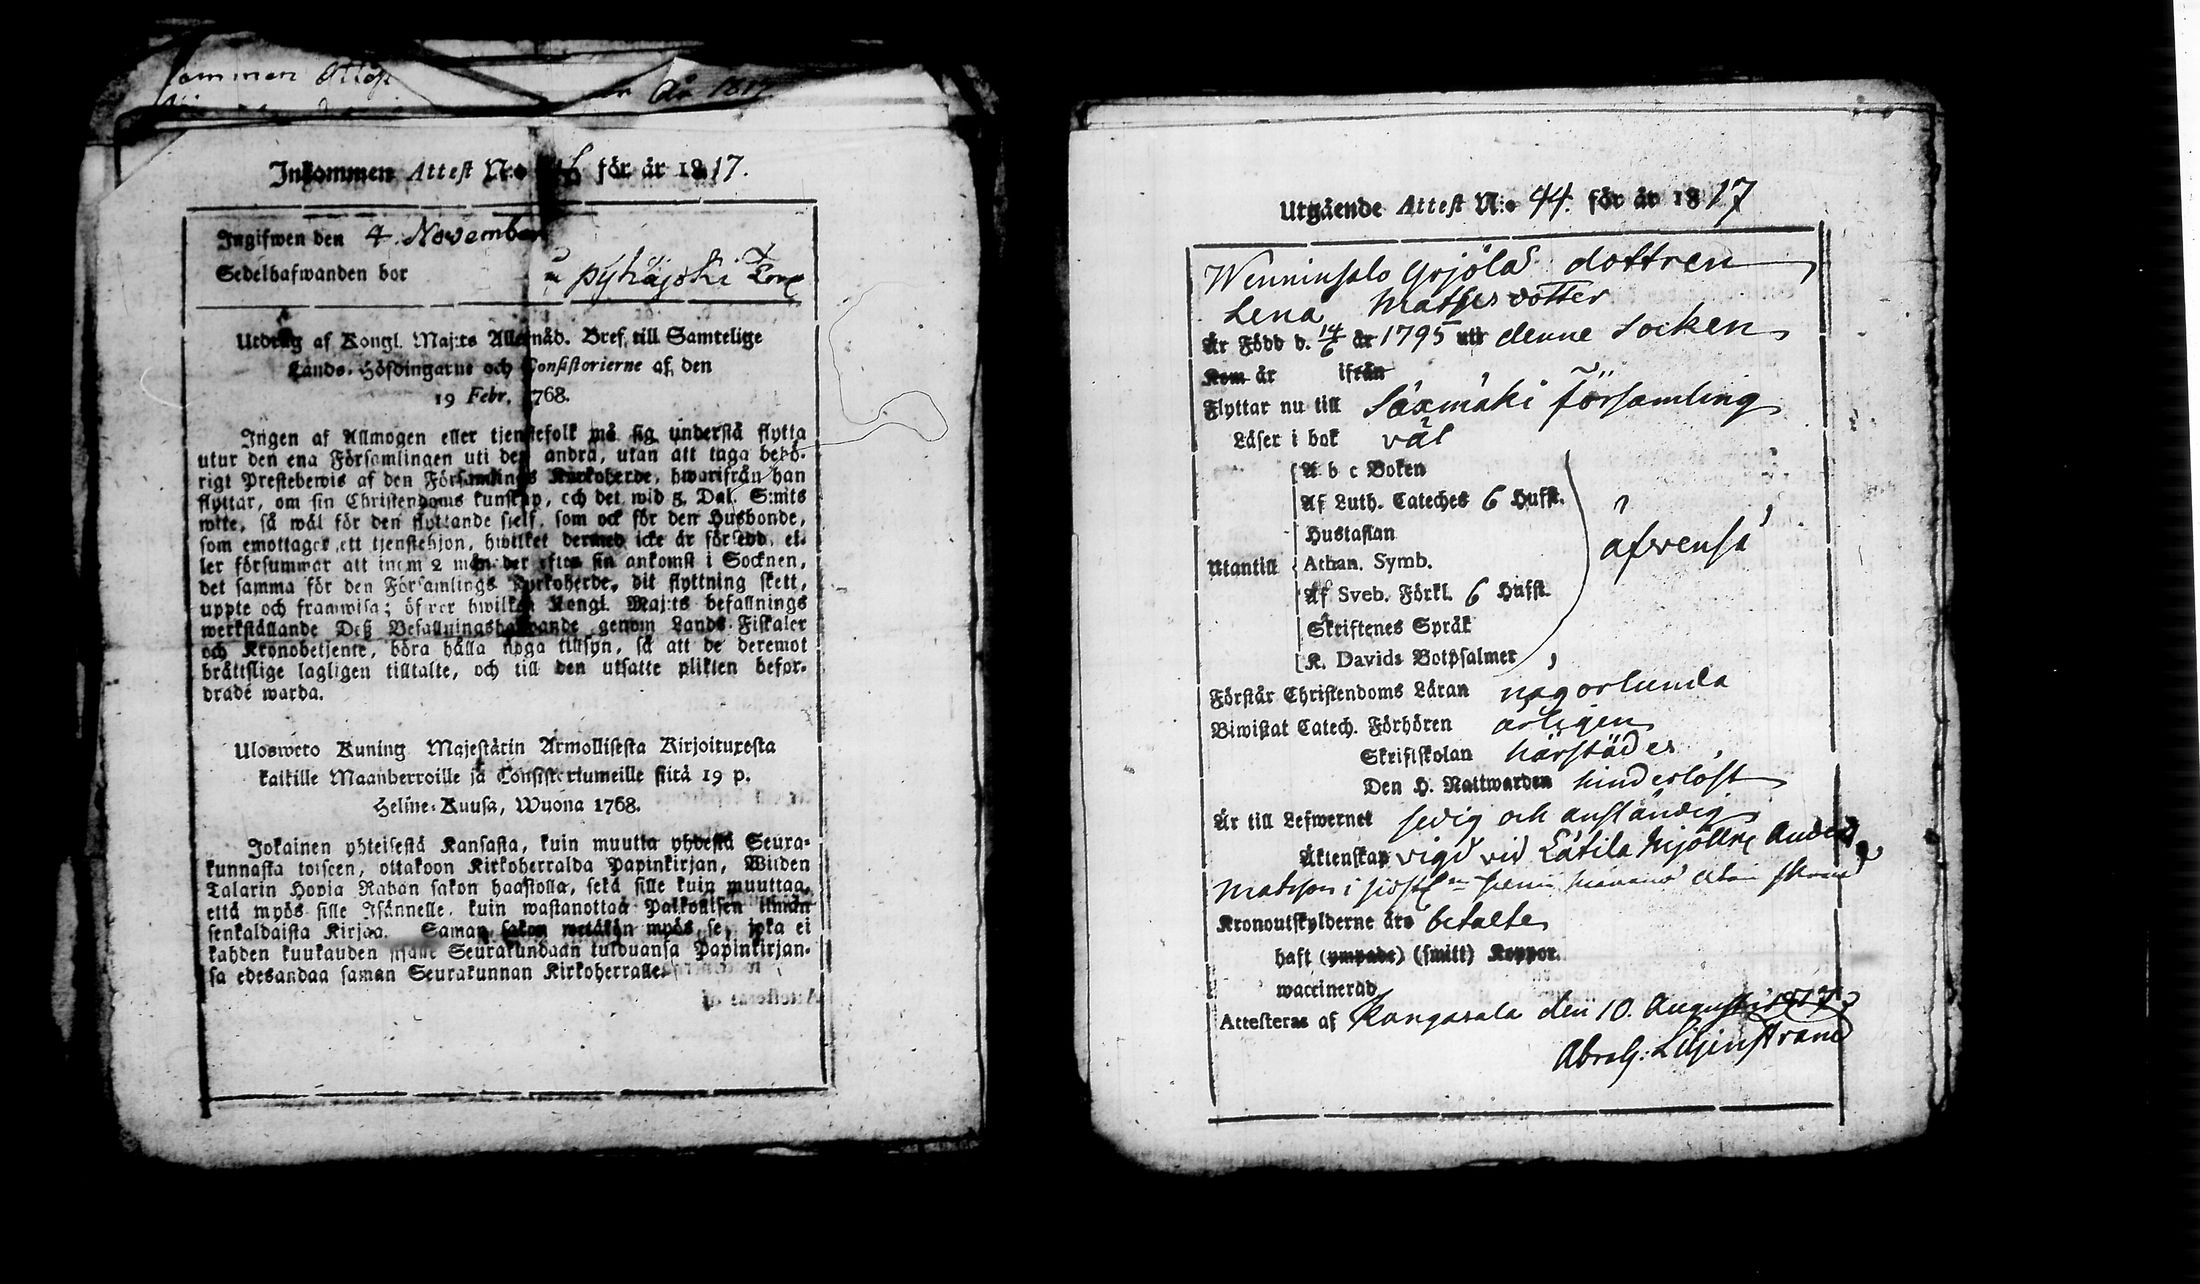 ommen Attest
År 181
Inkommen Attest N:o för år 1817.
Ingifwen den 4. November
Sedelhafwanden bor Pyhäjoki
Utdrag af Kongl. Maj:ts Allernåd. Bref, till Samtelige
Lands-Höfdingarne och Consistorierne af den
19 Febr. 1768.
Ingen af Allmogen eller tjenstefolk må sig understå flytta
utur den ena Församlingen uti den andra, utan att taga behö-
rigt Prestebewis af den Församlings Kyrkoherde, hwarifrån han
flyttar, om sin Christendoms kunskap, och det wid 5 Dal. S:mts
wite, så wäl för den flyttande sjelf, som ock för den Husbonde,
som emottager ett tjenstehjon, hwilket dermed icke är försedd, el-
ler försummar att inom 2 mån. der efter sin ankomst i Socknen,
det samma för den Församlings Kyrkoherde, dit flyttning skett,
uppte och framwisa; öfwer hwilken Kongl. Maj:ts befallnings
werkställande Deß Befallningshafwande genom Lands-Fiskaler
och Kronobetjente, böra hålla noga tillsyn, så att de deremot
bråttslige lagligen tilltalte, och till den utsatte plikten befor-
drade warda.
Ulosweto Kuning Majestätin Armollisesta Kirjoituxesta
kaikille Maanherroille ja Consistoriumeille siitä 19 p.
Helme-Kuusa, Wuona 1768.
Jokainen yhteisestä Kansasta, kuin muutta yhdestä Seura-
kunnasta toiseen, ottakoon Kirkoherralda Papinkirjan, Wiiden
Talarin Hopia Rahan sakon haastolla, sekä sille kuin muuttaa,
että myös sille Isännelle, kuin wastanottaa Palkollisen ilman
senkaldaista Kirjaa. Saman sakon wetäkön myös se, joka ei
kahden kuukauden sisälle Seurakundaan tulduansa Papinkirjan-
sa edesandaa saman Seurakunnan Kirkoherralle.
Utgående Attest N:o 44. för år 1817
Grjölas dottren
Lena Matts dotter
Är Född d. 14/6 år 1795 uti denne Socken
Kom år ifrån
Flyttar nu till Säxmäki församling
Läser i bok väl
A b c Boken
Af Luth. Cateches 6 Hufst.
Hustaflan
Utantill Athan. Symb. äfvenså
Af Sveb. Förkl. 6 Hufst.
Skriftenes Språk
K. Davids Botpsalmer
Förstår Christendoms Läran någorlunda
Biwistat Catech. Förhören årligen
Skriftskolan härstädes
Den H. Nattwarden hinderlöst
Är till Lefwernet sedig och anständig
Äktenskap vigd vid
Kronoutskylderne äro betalte
haft (ympade) (smitt) Koppor.
waccinerad
Attesteras af Kangasala den 10. Augusti 1817
Abrah: Liljenstrand